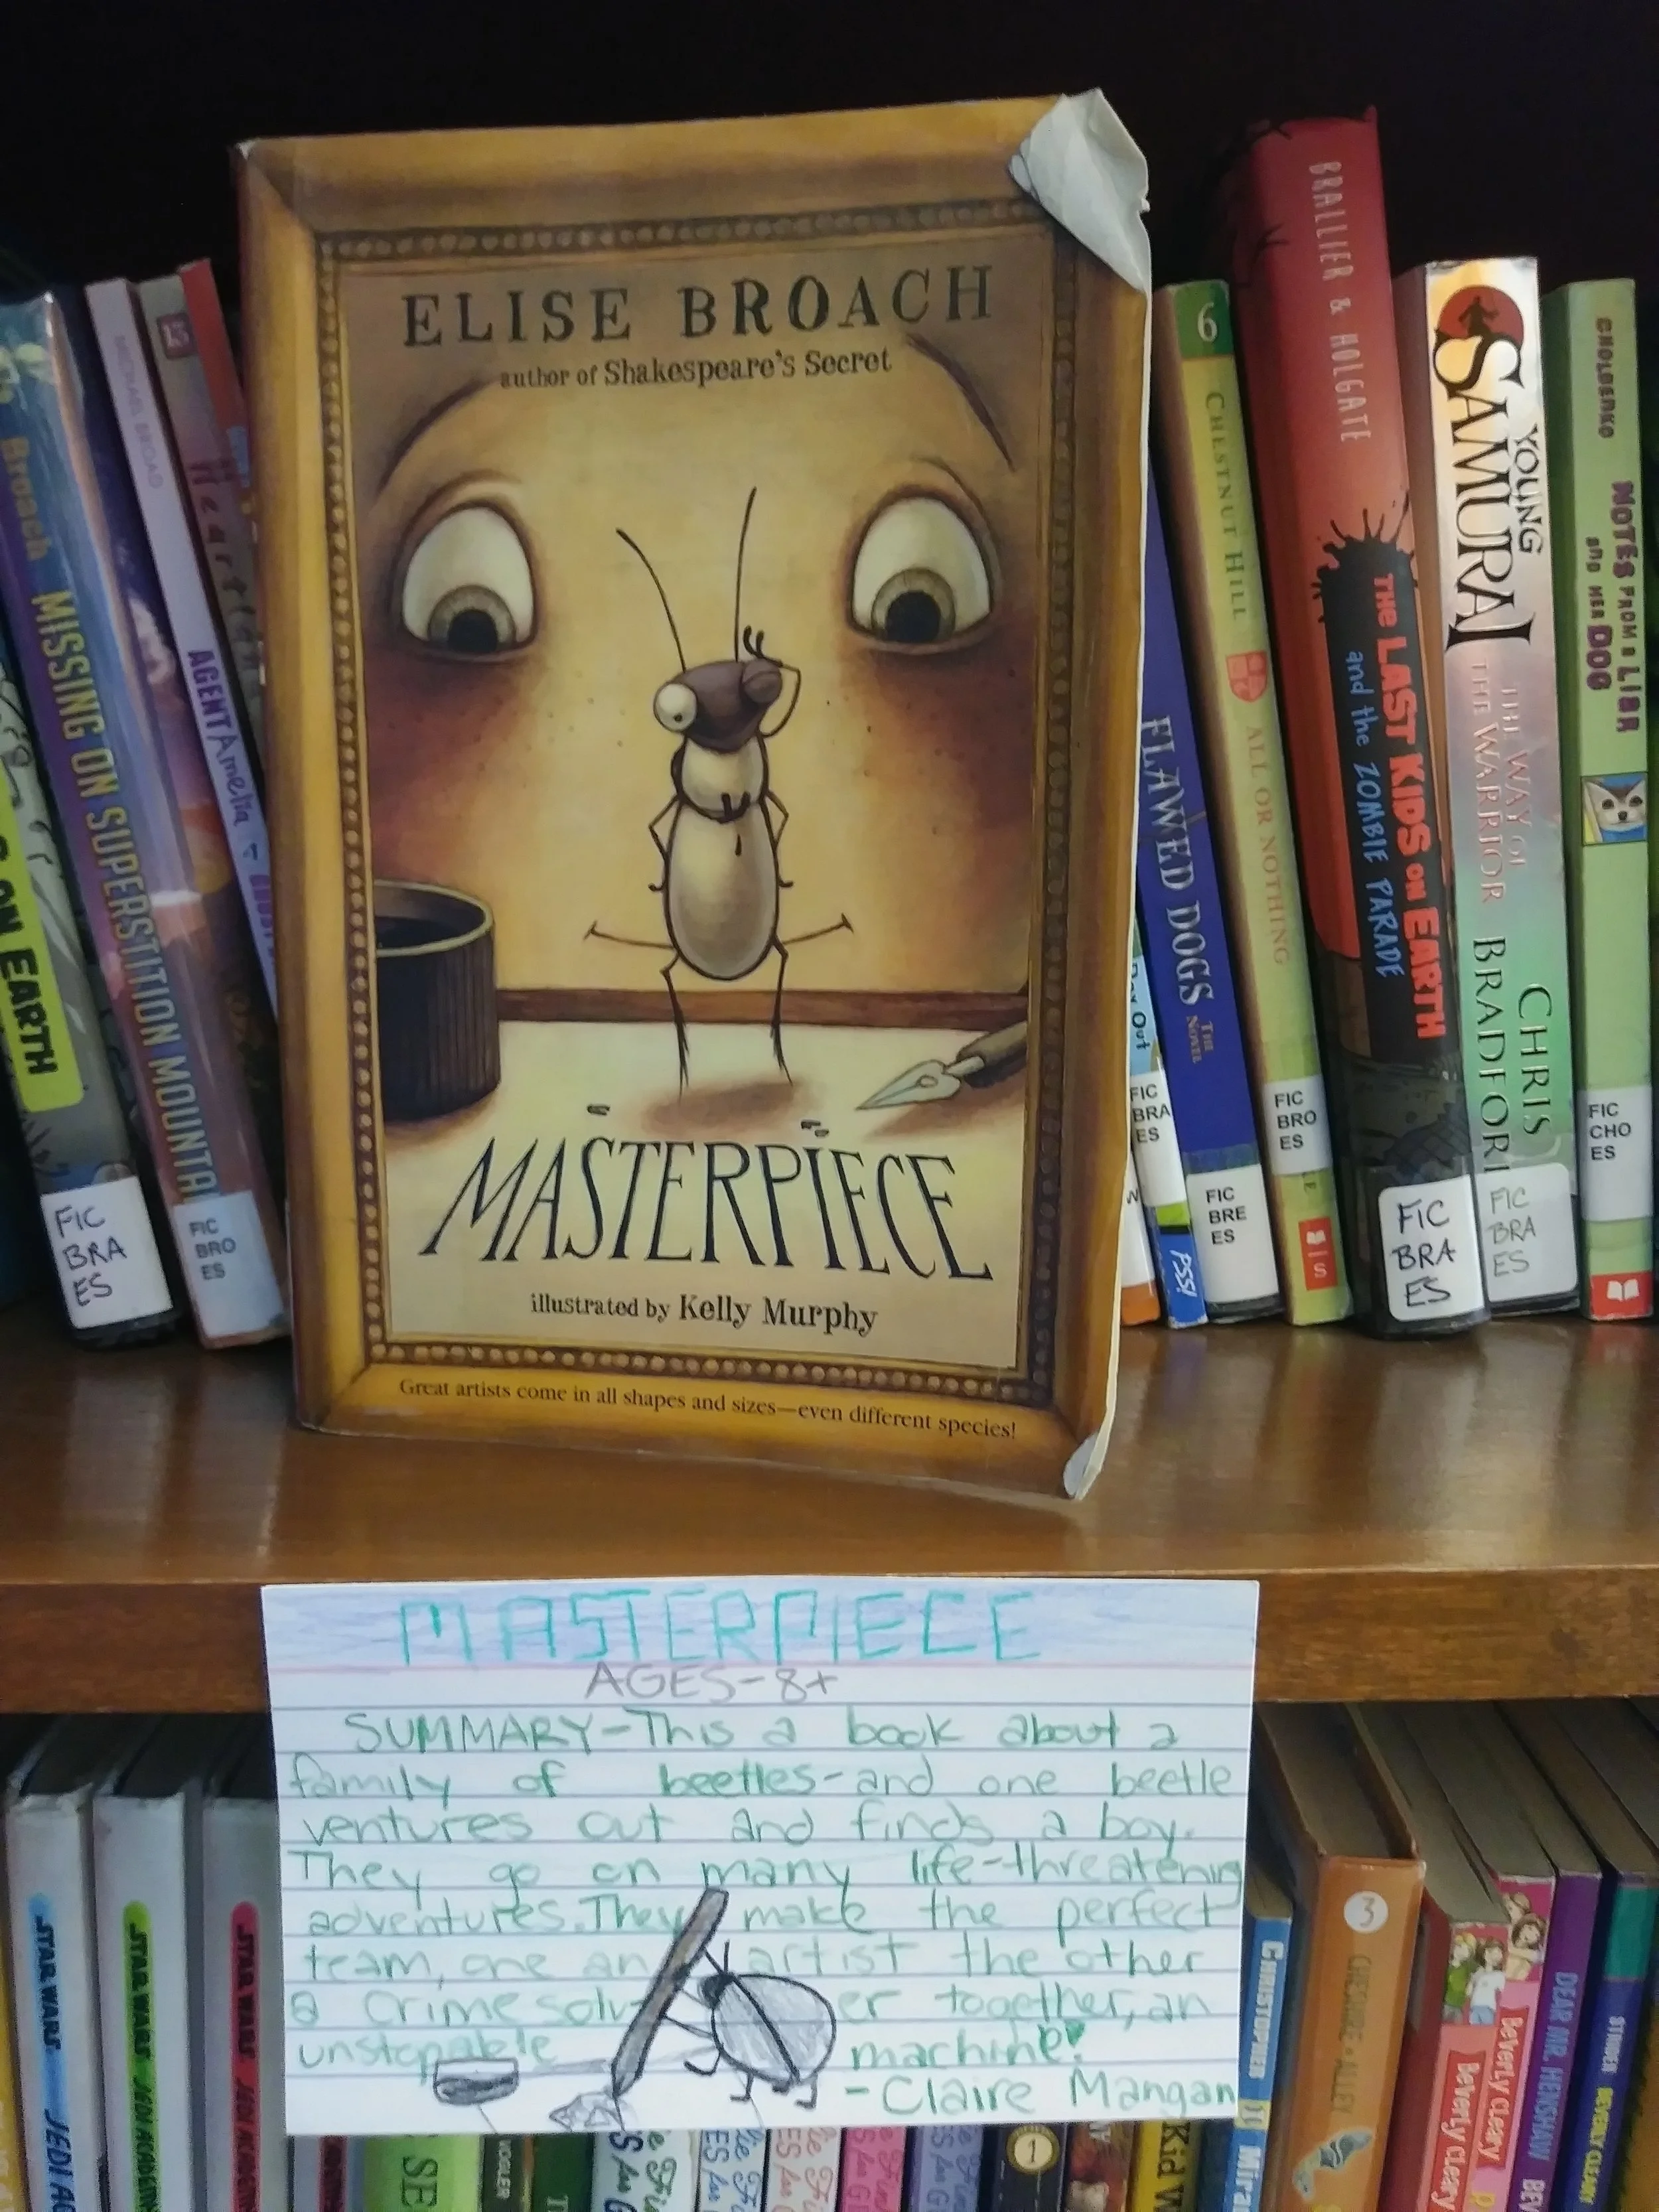 ELISE BROACH
author of Shakespeare's Secret
MASTERPIECE
illustrated by Kelly Murphy
Great artists come in all shapes and sizes—even different species!
ON EARTH
FIC
BRA
ES
Broach MISSING ON SUPERSTITION MOUNTAI
FIC
BRO
ES
MICHAEL BROAD
AGENT Amelia
15
Heart
Day Out
FIC
BRA
ES
FLAWED DOGS THE NOVEL
PSS!
FIC
BRE
ES
6
CHESTNUT HILL ALL OR NOTHING
FIC
BRO
ES
BRALLIER & HOLGATE
THE LAST KIDS ON EARTH
and the ZOMBIE PARADE
FIC
BRA
ES
YOUNG
SAMURAI
THE WAY OF
THE WARRIOR
CHRIS
BRADFOR
FIC
BRA
ES
CHOLDENKO
NOTES FROM A LIAR
AND HER DOG
FIC
CHO
ES
MASTERPIECE
AGES-8+
SUMMARY-This a book about a
family of beetles-and one beetle
ventures out and finds a boy.
They go on many life-threatening
adventures. They make the perfect
team, one an artist the other
a crime solver together, an
unstopable machine!
-Claire Mangan
STAR WARS JEDI AC
STAR WARS JEDI ACADEM
STAR WARS JEDI ACADEM
SE
1
Kid
CHRISTOPHER
3
CHESHIRE ALLEY
Beverly Cleary
Beverly Cleary
DEAR MR. HENSHAW BE
STRIDER BEVERLY CLEARY